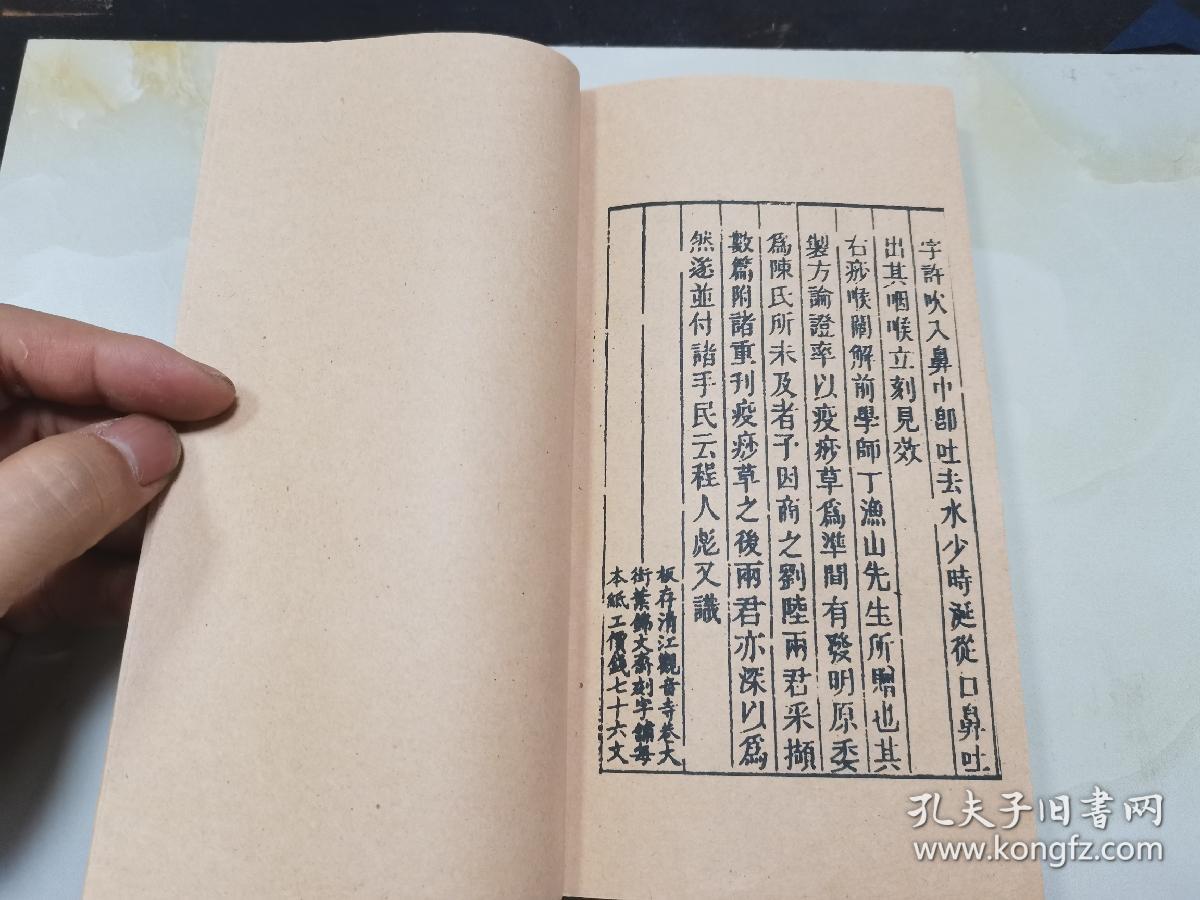 字許吹入鼻中卽吐去水少時涎從口鼻吐
出其咽喉立刻見效
右痧喉闡解前學師丁漁山先生所贈也其
製方論證率以疫痧草爲準間有發明原委
爲陳氏所未及者予因商之劉陸兩君采擷
數篇附諸重刊疫痧草之後兩君亦深以爲
然遂並付諸手民云程人彪又識
板存清江觀音寺巷大
街葉錦文齋刻字鋪每
本紙工價錢七十六文
孔夫子旧书网
www.kongfz.com